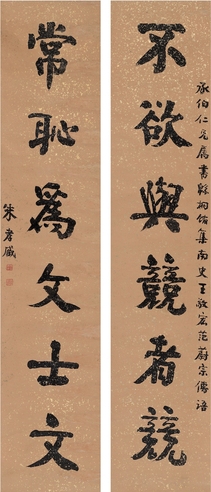 不欲與競者競
承伯仁兄屬書縣桐館集南史王敬宏范蔚宗傳語
常恥爲文士文
朱孝臧